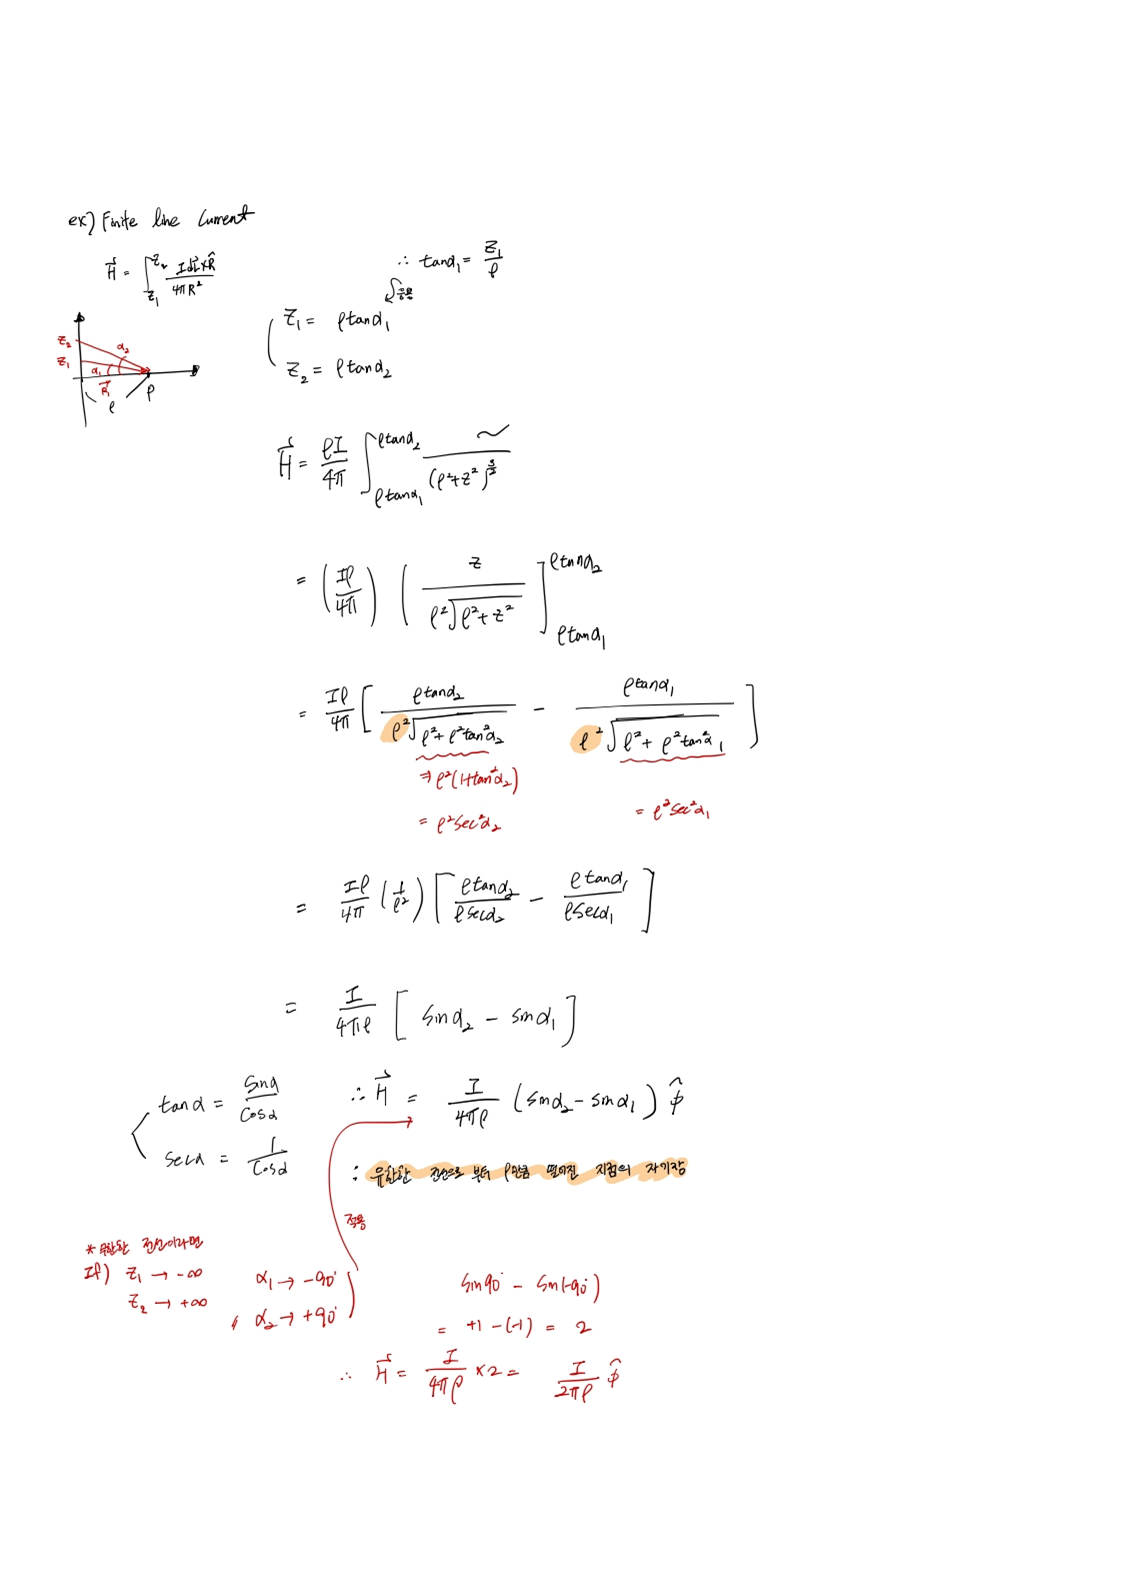 ex) Finite line current
H⃗ = ∫_{z₁}^{z₂} Idl⃗×R̂ / 4πR²
∴ tanα₁ = z₁/ρ
응용
z₁ = ρtanα₁
z₂ = ρtanα₂
z₂
z₁
α₂
α₁
R⃗
ρ
P
H⃗ = ρI/4π ∫_{ρtanα₁}^{ρtanα₂} ~/(ρ²+z²)^{3/2}
= (Iρ/4π) [ z / ρ²√(ρ²+z²) ]_{ρtanα₁}^{ρtanα₂}
= Iρ/4π [ ρtanα₂ / ρ²√(ρ²+ρ²tan²α₂) − ρtanα₁ / ρ²√(ρ²+ρ²tan²α₁) ]
⇒ ρ²(1+tan²α₂)
= ρ²sec²α₂
= ρ²sec²α₁
= Iρ/4π (1/ρ²) [ ρtanα₂/ρsecα₂ − ρtanα₁/ρsecα₁ ]
= I/4πρ [ sinα₂ − sinα₁ ]
tanα = sinα/cosα
secα = 1/cosα
∴ H⃗ = I/4πρ (sinα₂ − sinα₁) φ̂
: 유한한 전선으로 부터 ρ만큼 떨어진 지점의 자기장
적용
* 무한한 전선이라면
If) z₁ → -∞ α₁ → -90°
z₂ → +∞ , α₂ → +90°
sin90° − sin(-90°)
= +1 −(-1) = 2
∴ H⃗ = I/4πρ ×2 = I/2πρ φ̂